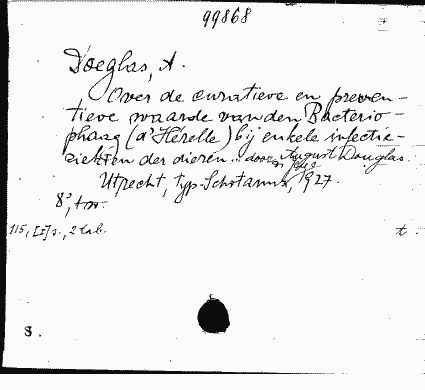 99868
D'oeglas, A.
Over de curatieve en preven-
tieve waarde van den Bacterio-
phaag (d'Hérelle) bij enkele infectie-
ziekten der dieren... door August Douglas.
Utrecht, typ. Schotanus, 1927.
8°,
115, [3] s., 2 tab. t.
8.